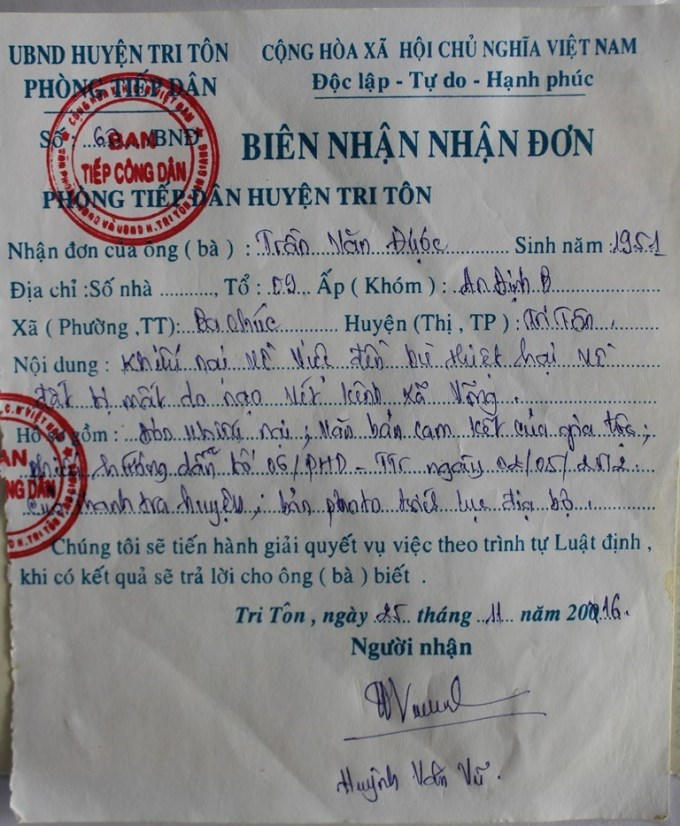 UBND HUYỆN TRI TÔN
PHÒNG TIẾP DÂN
CỘNG HÒA XÃ HỘI CHỦ NGHĨA VIỆT NAM
Độc lập - Tự do - Hạnh phúc
Số : BNĐ
BAN
TIẾP CÔNG DÂN
BIÊN NHẬN NHẬN ĐƠN
PHÒNG TIẾP DÂN HUYỆN TRI TÔN
Nhận đơn của ông ( bà ) : Trần Văn Được Sinh năm : 1951
Địa chỉ :Số nhà .........., Tổ : 09 Ấp ( Khóm ) : An Định B
Xã ( Phường ,TT): Ba Chúc Huyện (Thị , TP ) : Tri Tôn
Nội dung : Khiếu nại về việc đền bù thiệt hại về
đất bị mất do nạo vét kênh xã Võng.
Hồ sơ gồm : Đơn khiếu nại ; Văn bản cam kết của gia tộc ;
phiếu hướng dẫn số 06/PHD - TTr ngày 02/05/2012
của thanh tra huyện ; bản photo trích lục địa bộ .
ÔNG DÂN
Chúng tôi sẽ tiến hành giải quyết vụ việc theo trình tự Luật định ,
khi có kết quả sẽ trả lời cho ông ( bà ) biết .
Tri Tôn , ngày 25 tháng 11 năm 2016.
Người nhận
Huỳnh Văn Vũ .